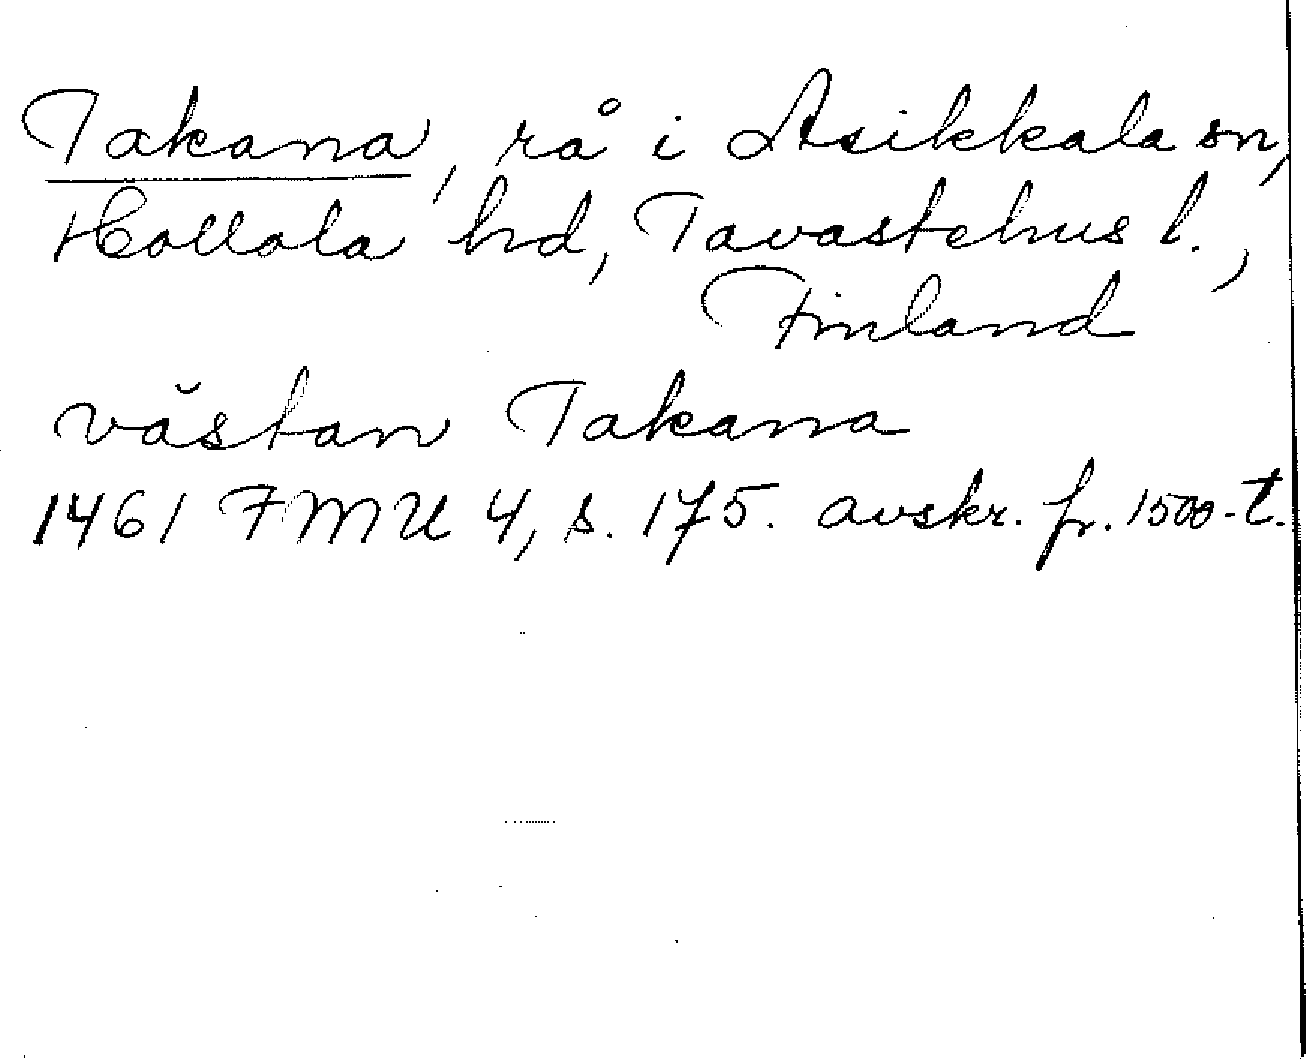 Takana, rå i Asikkala sn,
Hollola hd, Tavastehus l.,
Finland
västan Takana
1461 FMU 4, s. 175. avskr. fr. 1500-t.